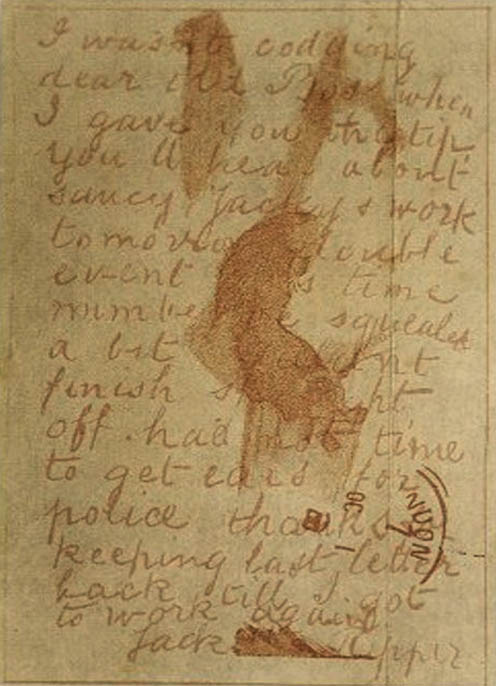 I wasnt codding
dear old Boss when
I gave you the tip
you'll hear about
saucy Jackys work
tomorrow double
event time
number squealed
a bit
finish
off. had not time
to get ears for
police thanks
keeping last letter
back till I got
to work again.
Jack Ripper
OC 1